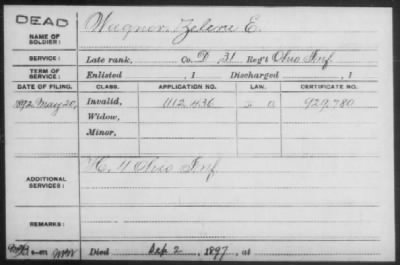 DEAD
NAME OF SOLDIER: Wagner, E.
SERVICE: Late rank, Co. D 31 Reg't Ohio Inf.
TERM OF SERVICE: Enlisted , 1 Discharged , 1
DATE OF FILING. CLASS. APPLICATION NO. LAW. CERTIFICATE NO.
1892 May 20, Invalid, 1112 436 929.780
Widow,
Minor,
ADDITIONAL SERVICES: Ohio Inf
REMARKS:
Died Sep 2, 1897, at